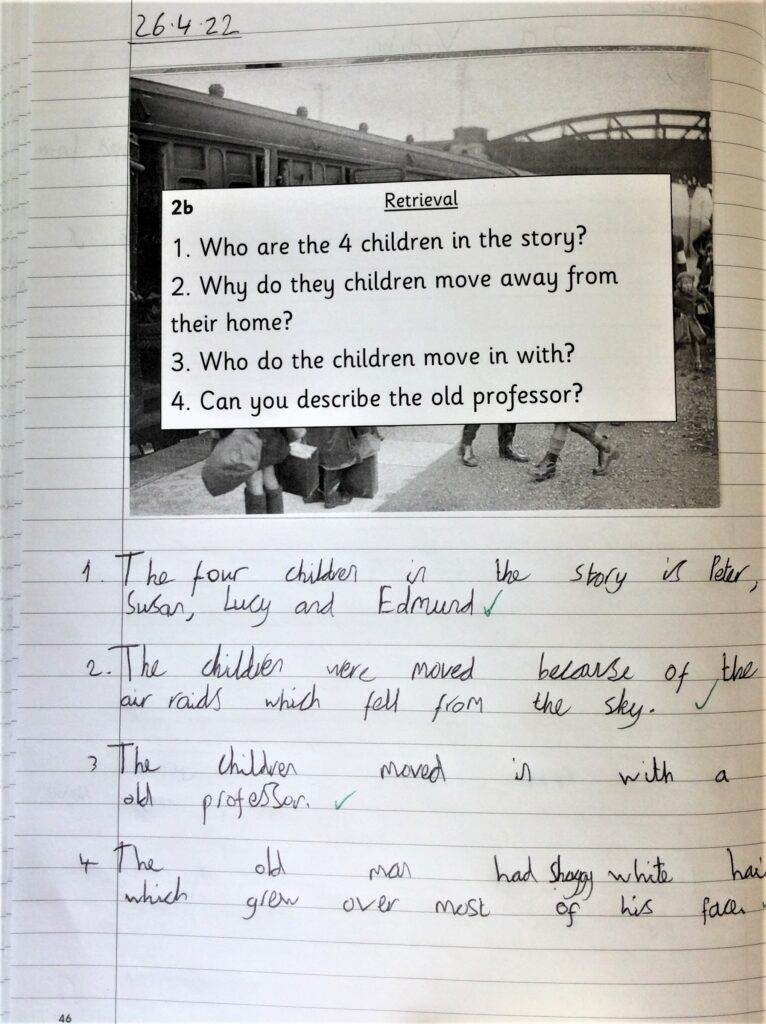 26.4.22
2b Retrieval
1. Who are the 4 children in the story?
2. Why do they children move away from
their home?
3. Who do the children move in with?
4. Can you describe the old professor?
1. The four children in the story is Peter,
Susan, Lucy and Edmund ✓
2. The children were moved because of the
air raids which fell from the sky. ✓
3 The children moved in with a
old professor. ✓
4 The old man had shaggy white hai
which grew over most of his face.
46